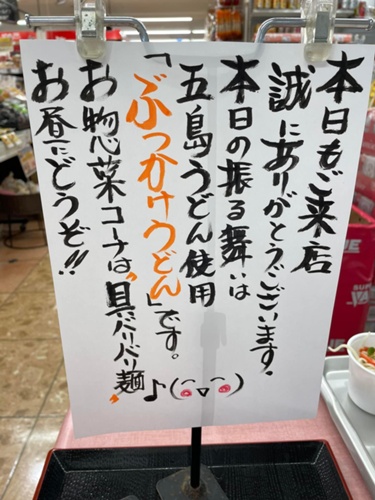 本日もご来店
誠にありがとうございます。
本日の振る舞いは
五島うどん使用
「ぶっかけうどん」です。
お惣菜コーナは〝具バリバリ麺〟♪(^▽^)
お昼にどうぞ!!